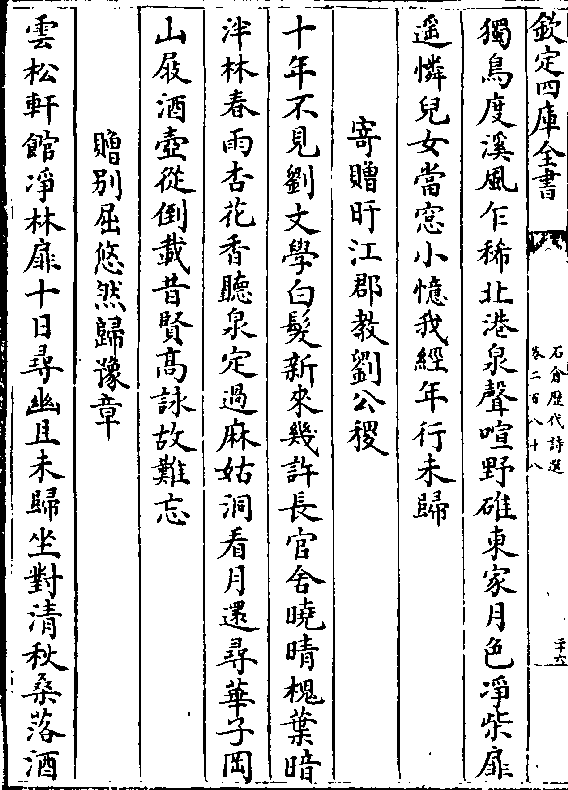 欽定四庫全書
石倉歷代詩選
卷二百八十八
二十六
獨鳥度溪風乍稀北港泉聲喧野碓東家月色凈柴扉
遥憐兒女當窓小憶我經年行未歸
寄贈旴江郡教劉公稷
十年不見劉文學白髮新來幾許長官舍曉晴槐葉暗
泮林春雨杏花香聽泉定過麻姑洞看月還尋華子岡
山屐酒壺從倒載昔賢高詠故難忘
贈别屈悠然歸豫章
雲松軒館凈林扉十日尋幽且未歸坐對清秋桑落酒